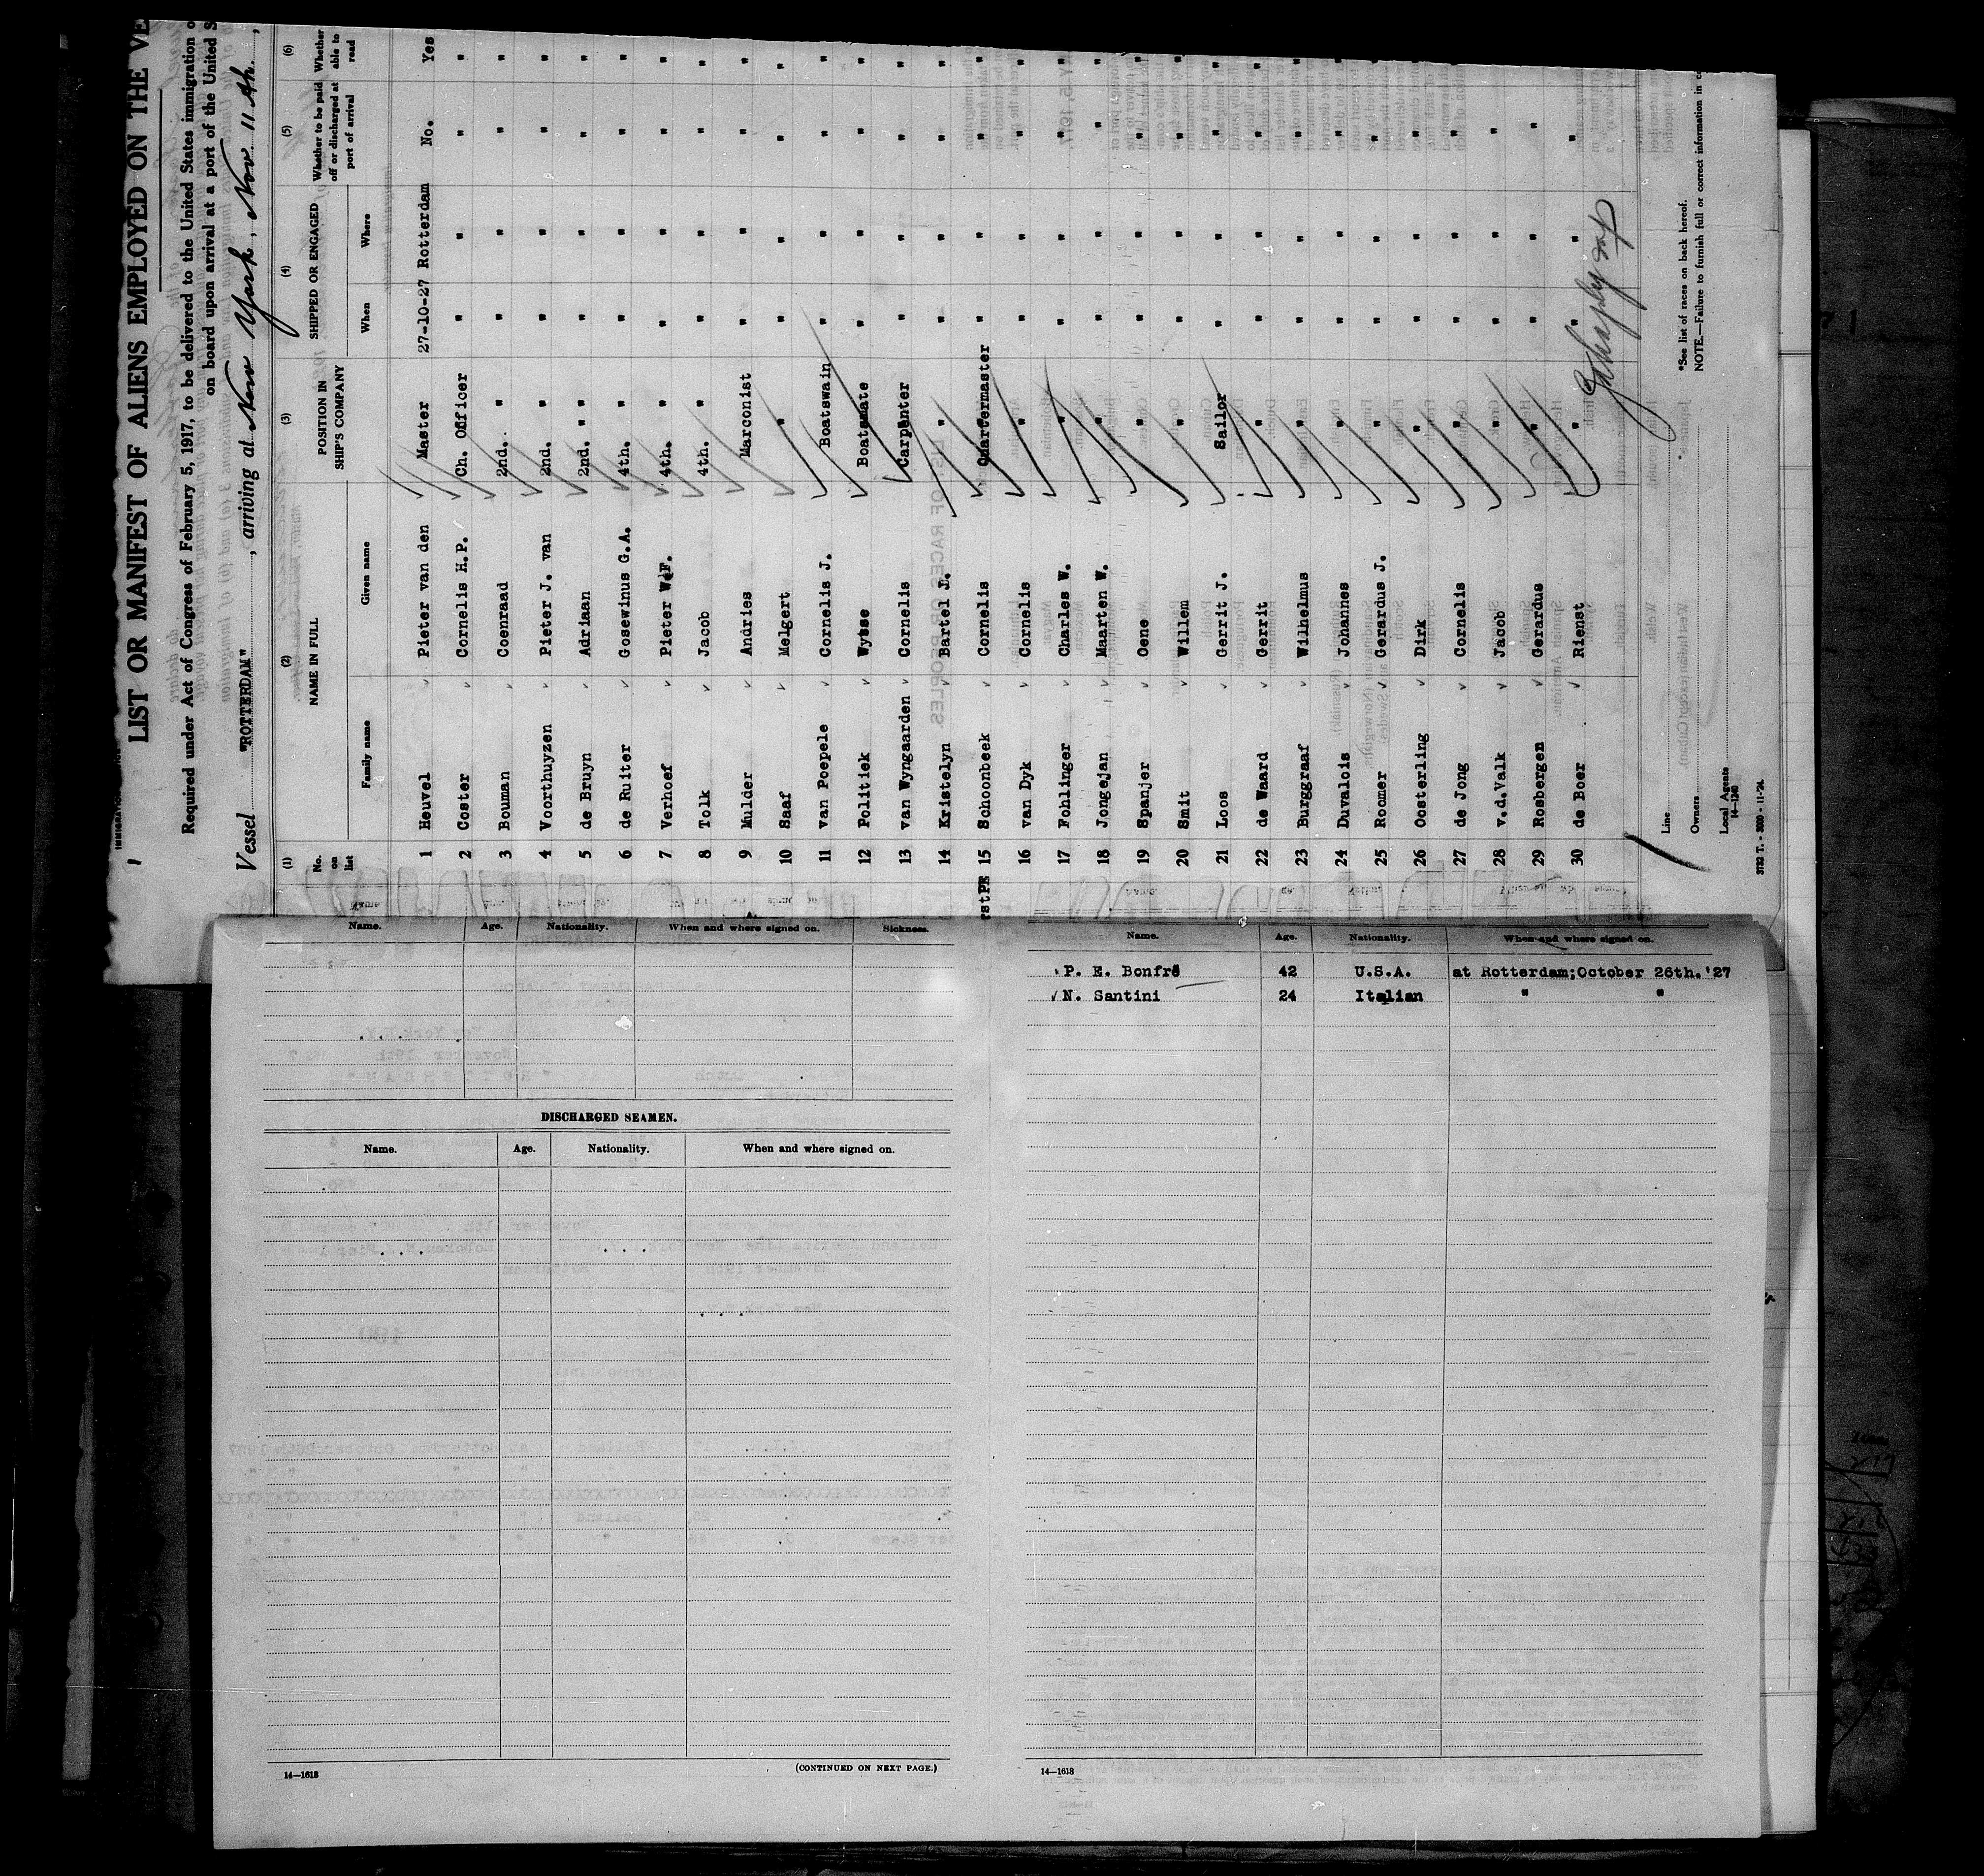 LIST OR MANIFEST OF ALIENS EMPLOYED ON THE VE
Required under Act of Congress of February 5, 1917, to be delivered to the United States immigration o
on board upon arrival at a port of the United S
Vessel "ROTTERDAM", arriving at New York, Nov. 11 th.
(1) (2) (3) (4) (5) (6)
No. on list NAME IN FULL POSITION IN SHIP'S COMPANY SHIPPED OR ENGAGED Whether to be paid off or discharged at port of arrival Whether able to read
Family name Given name When Where
1 Heuvel Pieter van den Master 27-10-27 Rotterdam No. Yes
2 Coster Cornelis H.P. Ch. Officer " " " "
3 Bouman Coenraad 2nd. " " " " "
4 Voorthuyzen Pieter J. van 2nd. " " " " "
5 de Bruyn Adriaan 2nd. " " " " " "
6 de Ruiter Gosewinus G.A. 4th. " " " " "
7 Verhoef Pieter W.F. 4th. " " " " "
8 Tolk Jacob 4th. " " " " "
9 Mulder Andries Marconist " " " "
10 Saaf Melgert " " " " "
11 van Poepele Cornelis J. Boatswain " " " "
12 Politiek Wytse Boatsmate " " " "
13 van Wyngaarden Cornelis Carpenter " " " "
14 Kristelyn Bartel L. " " " " "
rstPE 15 Schoonbeek Cornelis Quartermaster " " " "
16 van Dyk Cornelis " " " " "
17 Fohlinger Charles W. " " " " "
18 Jongejan Maarten W. " " " " "
19 Spanjer Oene " " " " "
20 Smit Willem " " " " "
21 Loos Gerrit J. Sailor " " " "
22 de Waard Gerrit " " " " "
23 Burggraaf Wilhelmus " " " " "
24 Duvalois Johannes " " " " "
25 Roomer Gerardus J. " " " " "
26 Oosterling Dirk " " " " "
27 de Jong Cornelis " " " " "
28 v.d.Valk Jacob " " " " "
29 Rosbergen Gerardus " " " " "
30 de Boer Rienst " " " "
Line
Owners
Local Agents
14—1240
3732 T. - 3000 - 11-'24.
*See list of races on back hereof.
NOTE.—Failure to furnish full or correct information in c
Name. Age. Nationality. When and where signed on. Sickness.
DISCHARGED SEAMEN.
Name. Age. Nationality. When and where signed on.
(CONTINUED ON NEXT PAGE.)
14—1618
Name. Age. Nationality. When and where signed on.
P. E. Bonfré 42 U.S.A. at Rotterdam;October 26th.'27
N. Santini 24 Italian " "
14—1618